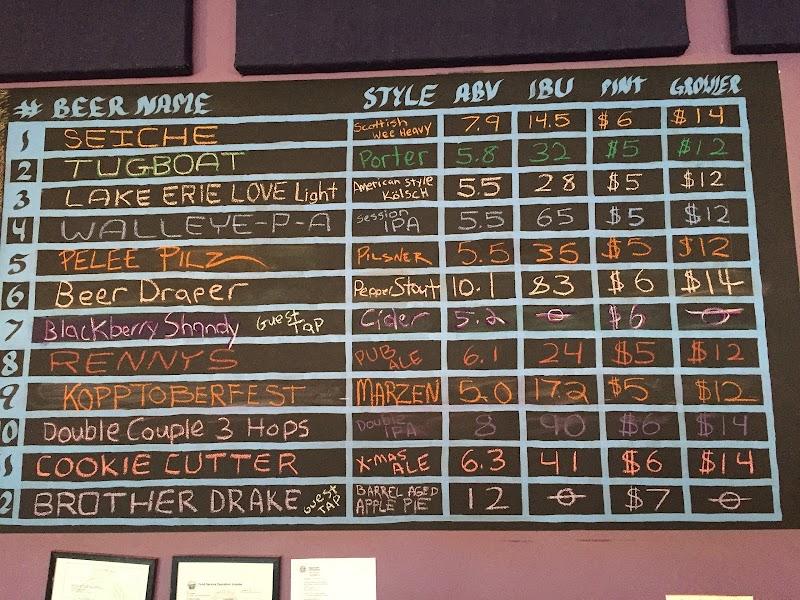 # BEER NAME STYLE ABV IBU PINT GROWLER
1 SEICHE Scottish Wee Heavy 7.9 14.5 $6 $14
2 TUGBOAT Porter 5.8 32 $5 $12
3 LAKE ERIE LOVE Light American Style KÖLSCH 5.5 28 $5 $12
4 WALLEYE-P-A Session IPA 5.5 65 $5 $12
5 PELEE PILZ PILSNER 5.5 35 $5 $12
6 Beer Draper Pepper Stout 10.1 83 $6 $14
7 Blackberry Shandy Guest TAP Cider 5.2 0 $6 0
8 RENNYS PUB ALE 6.1 24 $5 $12
9 KOPPTOBERFEST MARZEN 5.0 17.2 $5 $12
0 Double Couple 3 Hops Double IPA 8 90 $6 $14
1 COOKIE CUTTER X-MAS ALE 6.3 41 $6 $14
2 BROTHER DRAKE GUEST TAP BARREL AGED APPLE PIE 12 0 $7 0